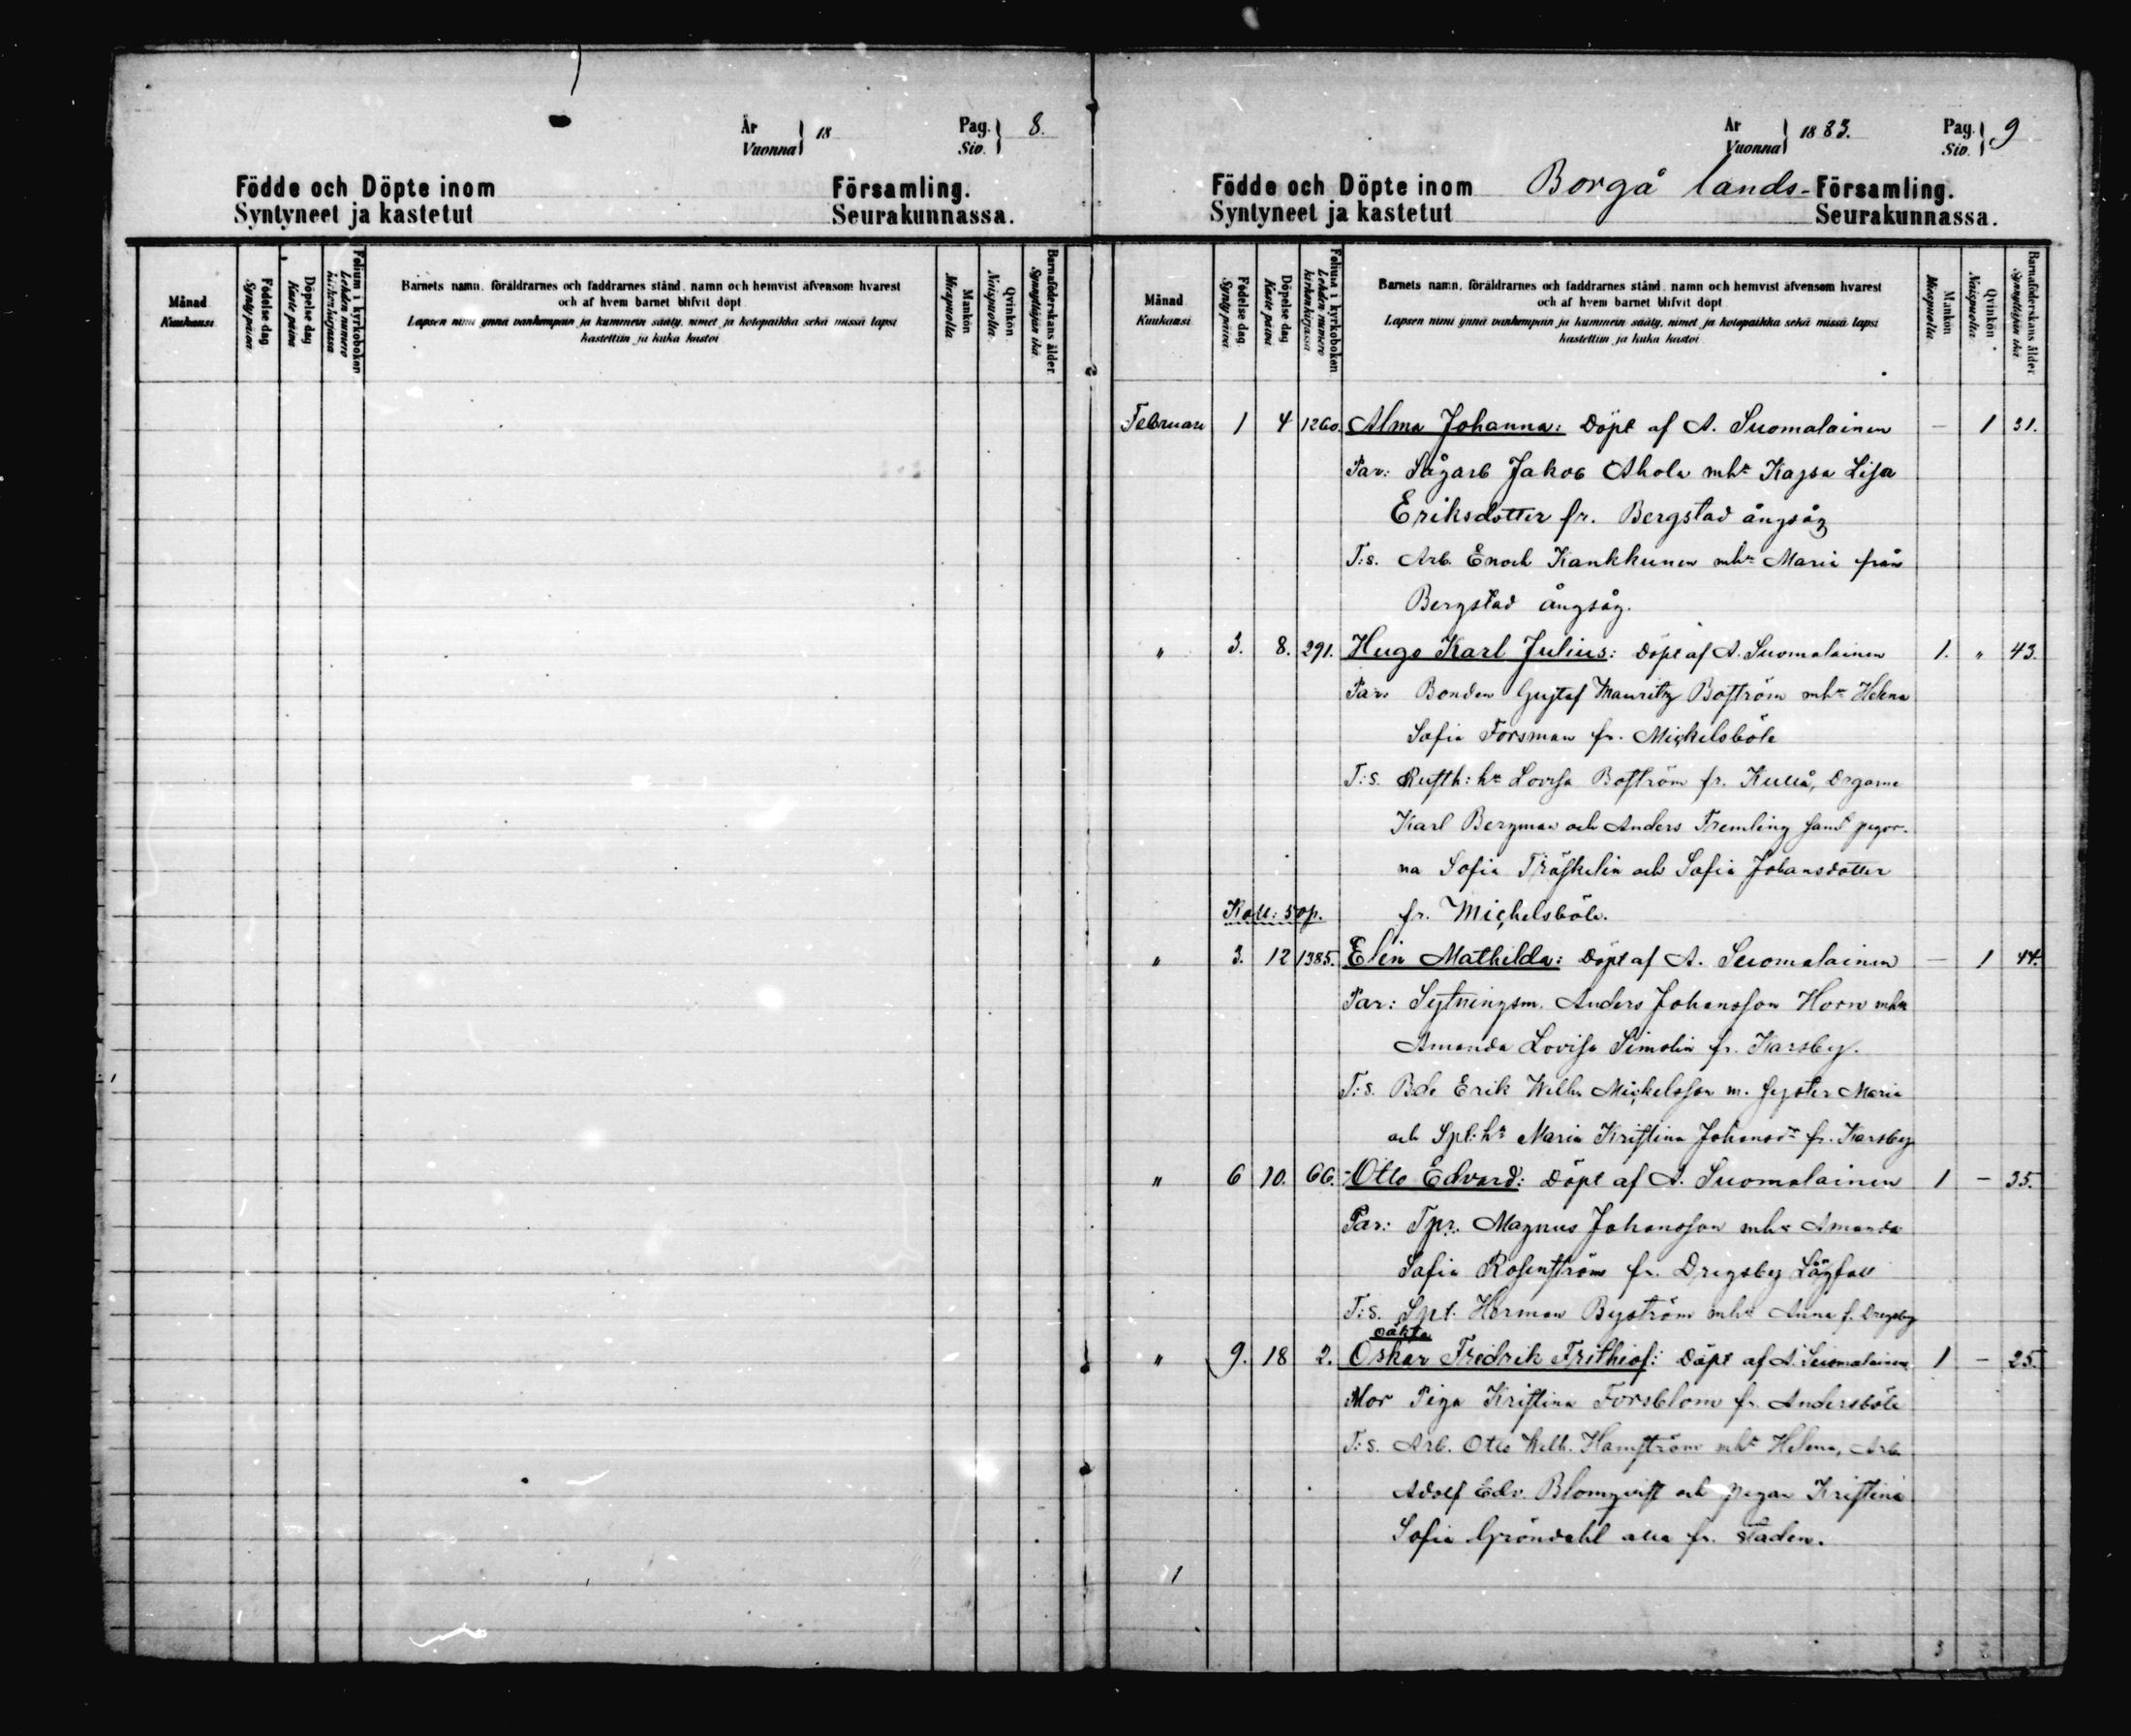 År
Vuonna } 18
Pag.
Siv. } 8.
Födde och Döpte inom Församling.
Syntyneet ja kastetut Seurakunnassa.
Månad
Kuukausi
Födelse dag
Synty päivä
Döpelse dag
Kaste päivä
Folium i kyrkoboken
Lehden numero
kirkonkirjassa
Barnets namn, föräldrarnes och faddrarnes stånd, namn och hemvist äfvensom hvarest
och af hvem barnet blifvit döpt
Lapsen nimi ynnä vanhempain ja kummein sääty, nimet ja kotopaikka sekä missä lapsi
kastettiin ja kuka kastoi
Mankön
Miespuolia
Qvinkön.
Naispuolia.
Barnaföderskans ålder.
Synnyttäjän ikä.
År
Vuonna } 1883.
Pag.
Siv. } 9
Födde och Döpte inom Borgå lands-Församling.
Syntyneet ja kastetut Seurakunnassa.
Månad
Kuukausi
Födelse dag.
Synty päivä.
Döpelse dag
Kaste päivä
Folium i kyrkoboken
Lehden numero
kirkonkirjassa
Barnets namn, föräldrarnes och faddrarnes stånd, namn och hemvist äfvensom hvarest
och af hvem barnet blifvit döpt
Lapsen nimi ynnä vanhempain ja kummein sääty, nimet ja kotopaikka sekä missä lapsi
kastettiin ja kuka kastoi
Mankön
Miespuolia
Qvinkön.
Naispuolia
Barnaföderskans ålder.
Synnyttäjän ikä.
Februari 1 4 1260. Alma Johanna: Döpt af A. Suomalainen — 1 31.
Par: Sågarb Jakob Ahola mhu Kajsa Lisa
Eriksdotter fr. Bergstad ångsåg
T:s. Arb. Enoch Kankkunen mhu Maria från
Bergstad ångsåg.
" 3. 8. 291. Hugo Karl Julius: Döpt af A. Suomalainen 1. " 43.
Par: Bonden Gustaf Mauritz Boström mhu Helena
Sofia Forsman fr. Mickelsböle
T:s. Rusth: hu Lovisa Boström fr. Kullå, Drgarne
Karl Bergman och Anders Tremling samt pigor-
na Sofia Träskelin och Sofia Johansdotter
Koll: 50p. fr. Mickelsböle.
" 3. 12 1385. Elin Mathilda: Döpt af A. Suomalainen — 1 44.
Par: Sytningsm. Anders Johansson Horn mhu
Amanda Lovisa Simolin fr. Karsby.
T:s. Bde Erik Wilh. Mickelsson m. syster Maria
och Spl: hu Maria Kristina Johansdr fr. Karsby
" 6 10. 66. Otto Edvard: Döpt af A. Suomalainen 1 — 35.
Par: Tpr. Magnus Johansson mhu Amanda
Sofia Rosenström fr. Drägsby Lågfall
T:s. Spl. Herman Byström mhu Anna f. Drägsby
oäkta
" 9. 18 2. Oskar Fredrik Frithiof: Döpt af A. Suomalainen 1 — 25.
Mor Piga Kristina Forsblom fr. Andersböle
T:s. Arb. Otto Wilh. Hamström mhu Helena, Arb
Adolf Edv. Blomqvist och pigan Kristina
Sofia Gröndahl alla fr. staden.
1
3